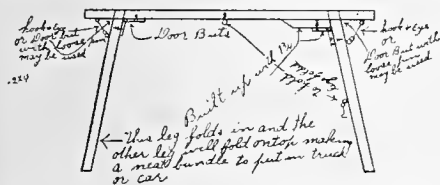 hook + eye
or Door but
with loose pin
may be used
Door Buts
hook + eye
or
Door But with
loose pin
may be used
2x4
Built up with 1 3/4
This leg folds in and the
other leg will fold on top making
a neat bundle to put in truck
or car